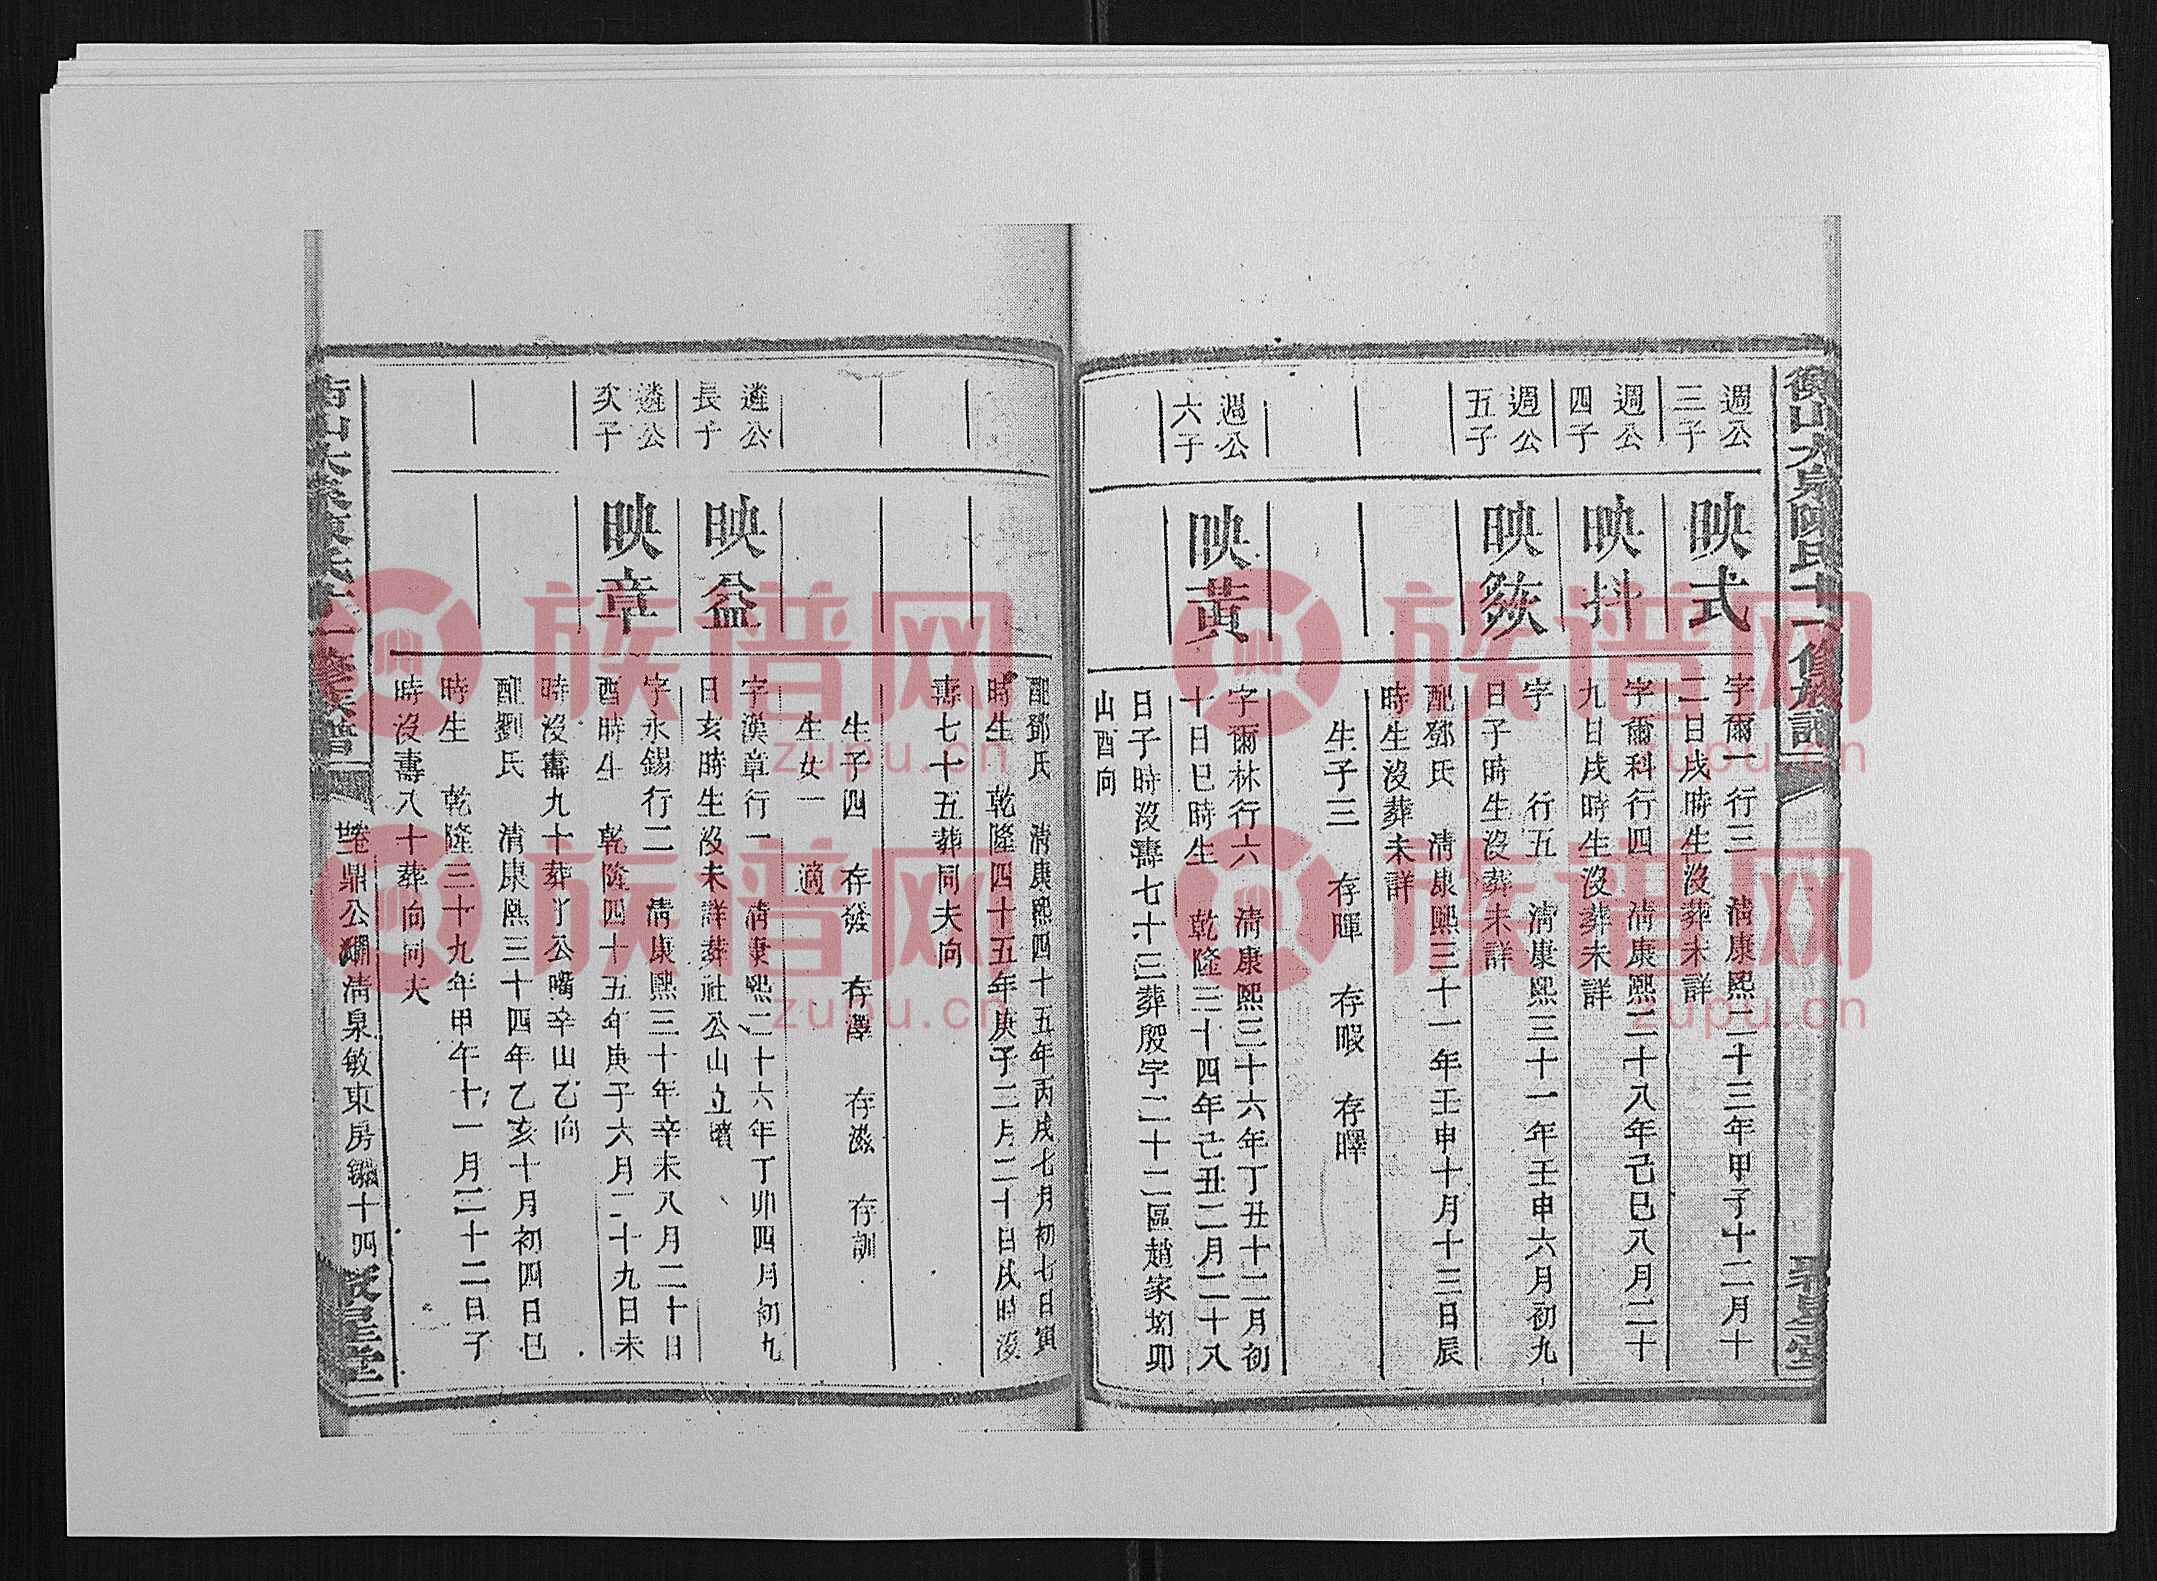 衡山大泉陳氏十一修族譜
聚星堂
週公
三子
映式
字爾一行三 清康熙二十三年甲子十二月十
二日戌時生沒葬未詳
週公
四子
映抖
字爾科行四 清康熙二十八年己巳八月二十
九日戌時生沒葬未詳
週公
五子
映
字 行五 清康熙三十一年壬申六月初九
日子時生沒葬未詳
配鄧氏 清康熙三十一年壬申十月十三日辰
時生沒葬未詳
生子三 存暉 存暇 存曎
週公
六子
映黃
字爾林行六 清康熙三十六年丁丑十二月初
十日巳時生 乾隆三十四年己丑二月二十八
日子時沒壽七十三葬殷字二十二區趙家坳卯
山酉向
配鄧氏 清康熙四十五年丙戌七月初七日寅
時生 乾隆四十五年庚子二月二十日戌時沒
壽七十五葬同夫向
生子四 存發 存澤 存滋 存訓
生女一 適
遴公
長子
映益
字漢章行一 清康熙二十六年丁卯四月初九
日亥時生沒未詳葬社公山立墳
遴公
次子
映章
字永錫行二 清康熙三十年辛未八月二十日
酉時生 乾隆四十五年庚子六月二十九日未
時沒壽九十葬丫公嘴辛山乙向
配劉氏 清康熙三十四年乙亥十月初四日巳
時生 乾隆三十九年甲午十一月二十二日子
時沒壽八十葬向同夫
衡山大泉陳氏十一修族譜
卷廿三 鼎公嗣清泉敏東房 十四
聚星堂
族谱网
zupu.cn
族谱网
zupu.cn
族谱网
zupu.cn
族谱网
zupu.cn